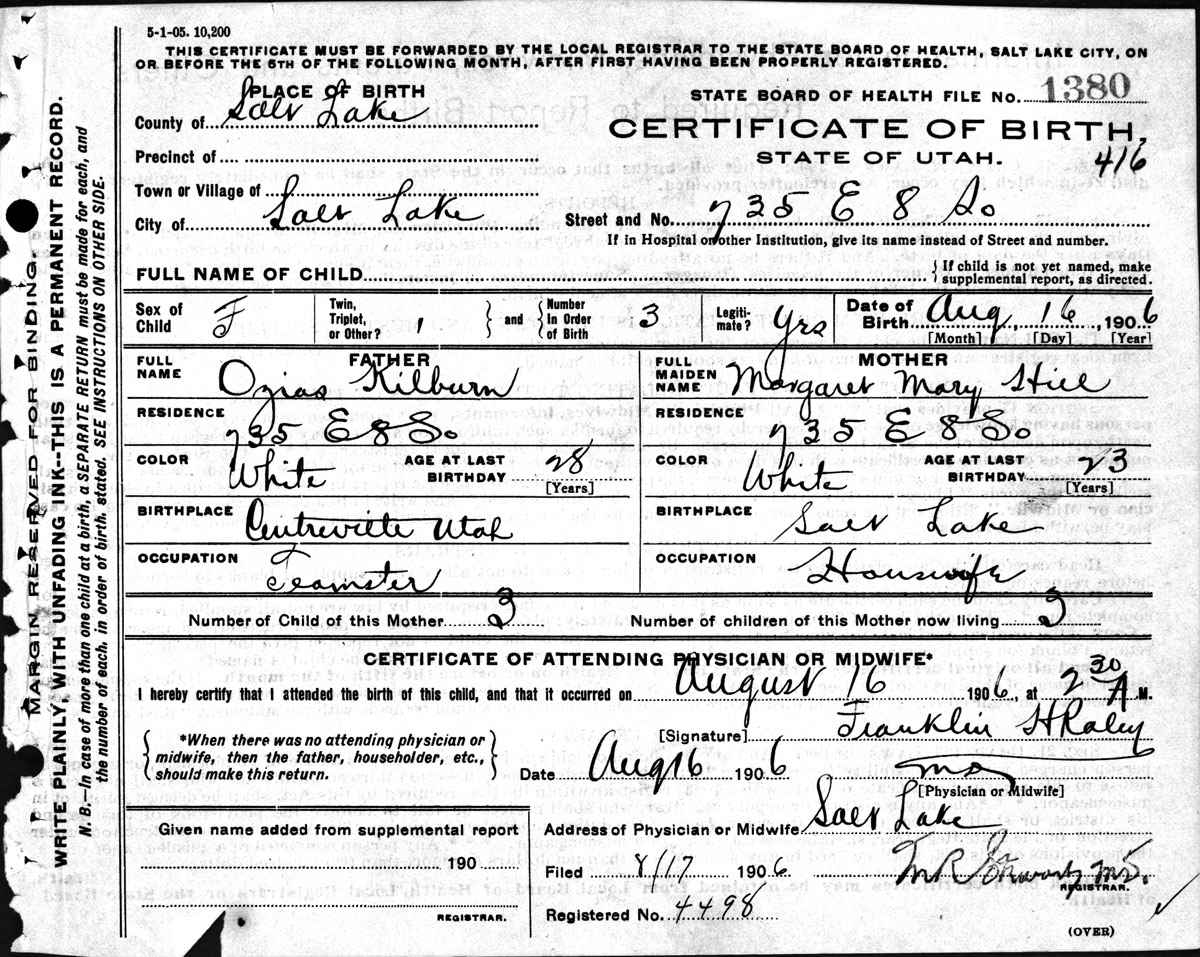 5-1-05. 10,200
THIS CERTIFICATE MUST BE FORWARDED BY THE LOCAL REGISTRAR TO THE STATE BOARD OF HEALTH, SALT LAKE CITY, ON
OR BEFORE THE 5TH OF THE FOLLOWING MONTH, AFTER FIRST HAVING BEEN PROPERLY REGISTERED.
PLACE OF BIRTH
STATE BOARD OF HEALTH FILE No. 1380
County of Salt Lake
CERTIFICATE OF BIRTH,
STATE OF UTAH. 416
Precinct of
Town or Village of
City of Salt Lake
Street and No. 735 E 8 So
If in Hospital or other Institution, give its name instead of Street and number.
FULL NAME OF CHILD
{ If child is not yet named, make
supplemental report, as directed.
Sex of Child F
Twin, Triplet, or Other? 1 } and { Number In Order of Birth 3
Legiti-mate? yrs
Date of Birth Aug, 16, 1906
[Month] [Day] [Year]
FATHER
FULL NAME Ozias Kilburn
RESIDENCE 735 E 8 So
COLOR White AGE AT LAST BIRTHDAY 28 [Years]
BIRTHPLACE Centreville Utah
OCCUPATION Teamster
MOTHER
FULL MAIDEN NAME Margaret Mary Hill
RESIDENCE 735 E 8 So
COLOR White AGE AT LAST BIRTHDAY 23 [Years]
BIRTHPLACE Salt Lake
OCCUPATION Houswife
Number of Child of this Mother 3 Number of children of this Mother now living 3
CERTIFICATE OF ATTENDING PHYSICIAN OR MIDWIFE.*
I hereby certify that I attended the birth of this child, and that it occurred on August 16 1906, at 2 30 A M.
{ *When there was no attending physician or
midwife, then the father, householder, etc.,
should make this return. }
[Signature] Franklin H Raley
Date Aug 16 1906 MD
[Physician or Midwife]
Given name added from supplemental report
190
REGISTRAR.
Address of Physician or Midwife Salt Lake
Filed 8/17 1906 M R Stewart MD.
REGISTRAR.
Registered No. 4498
(OVER)
MARGIN RESERVED FOR BINDING.
WRITE PLAINLY, WITH UNFADING INK--THIS IS A PERMANENT RECORD.
N. B.—In case of more than one child at a birth, a SEPARATE RETURN must be made for each, and
the number of each, in order of birth, stated. SEE INSTRUCTIONS ON OTHER SIDE.